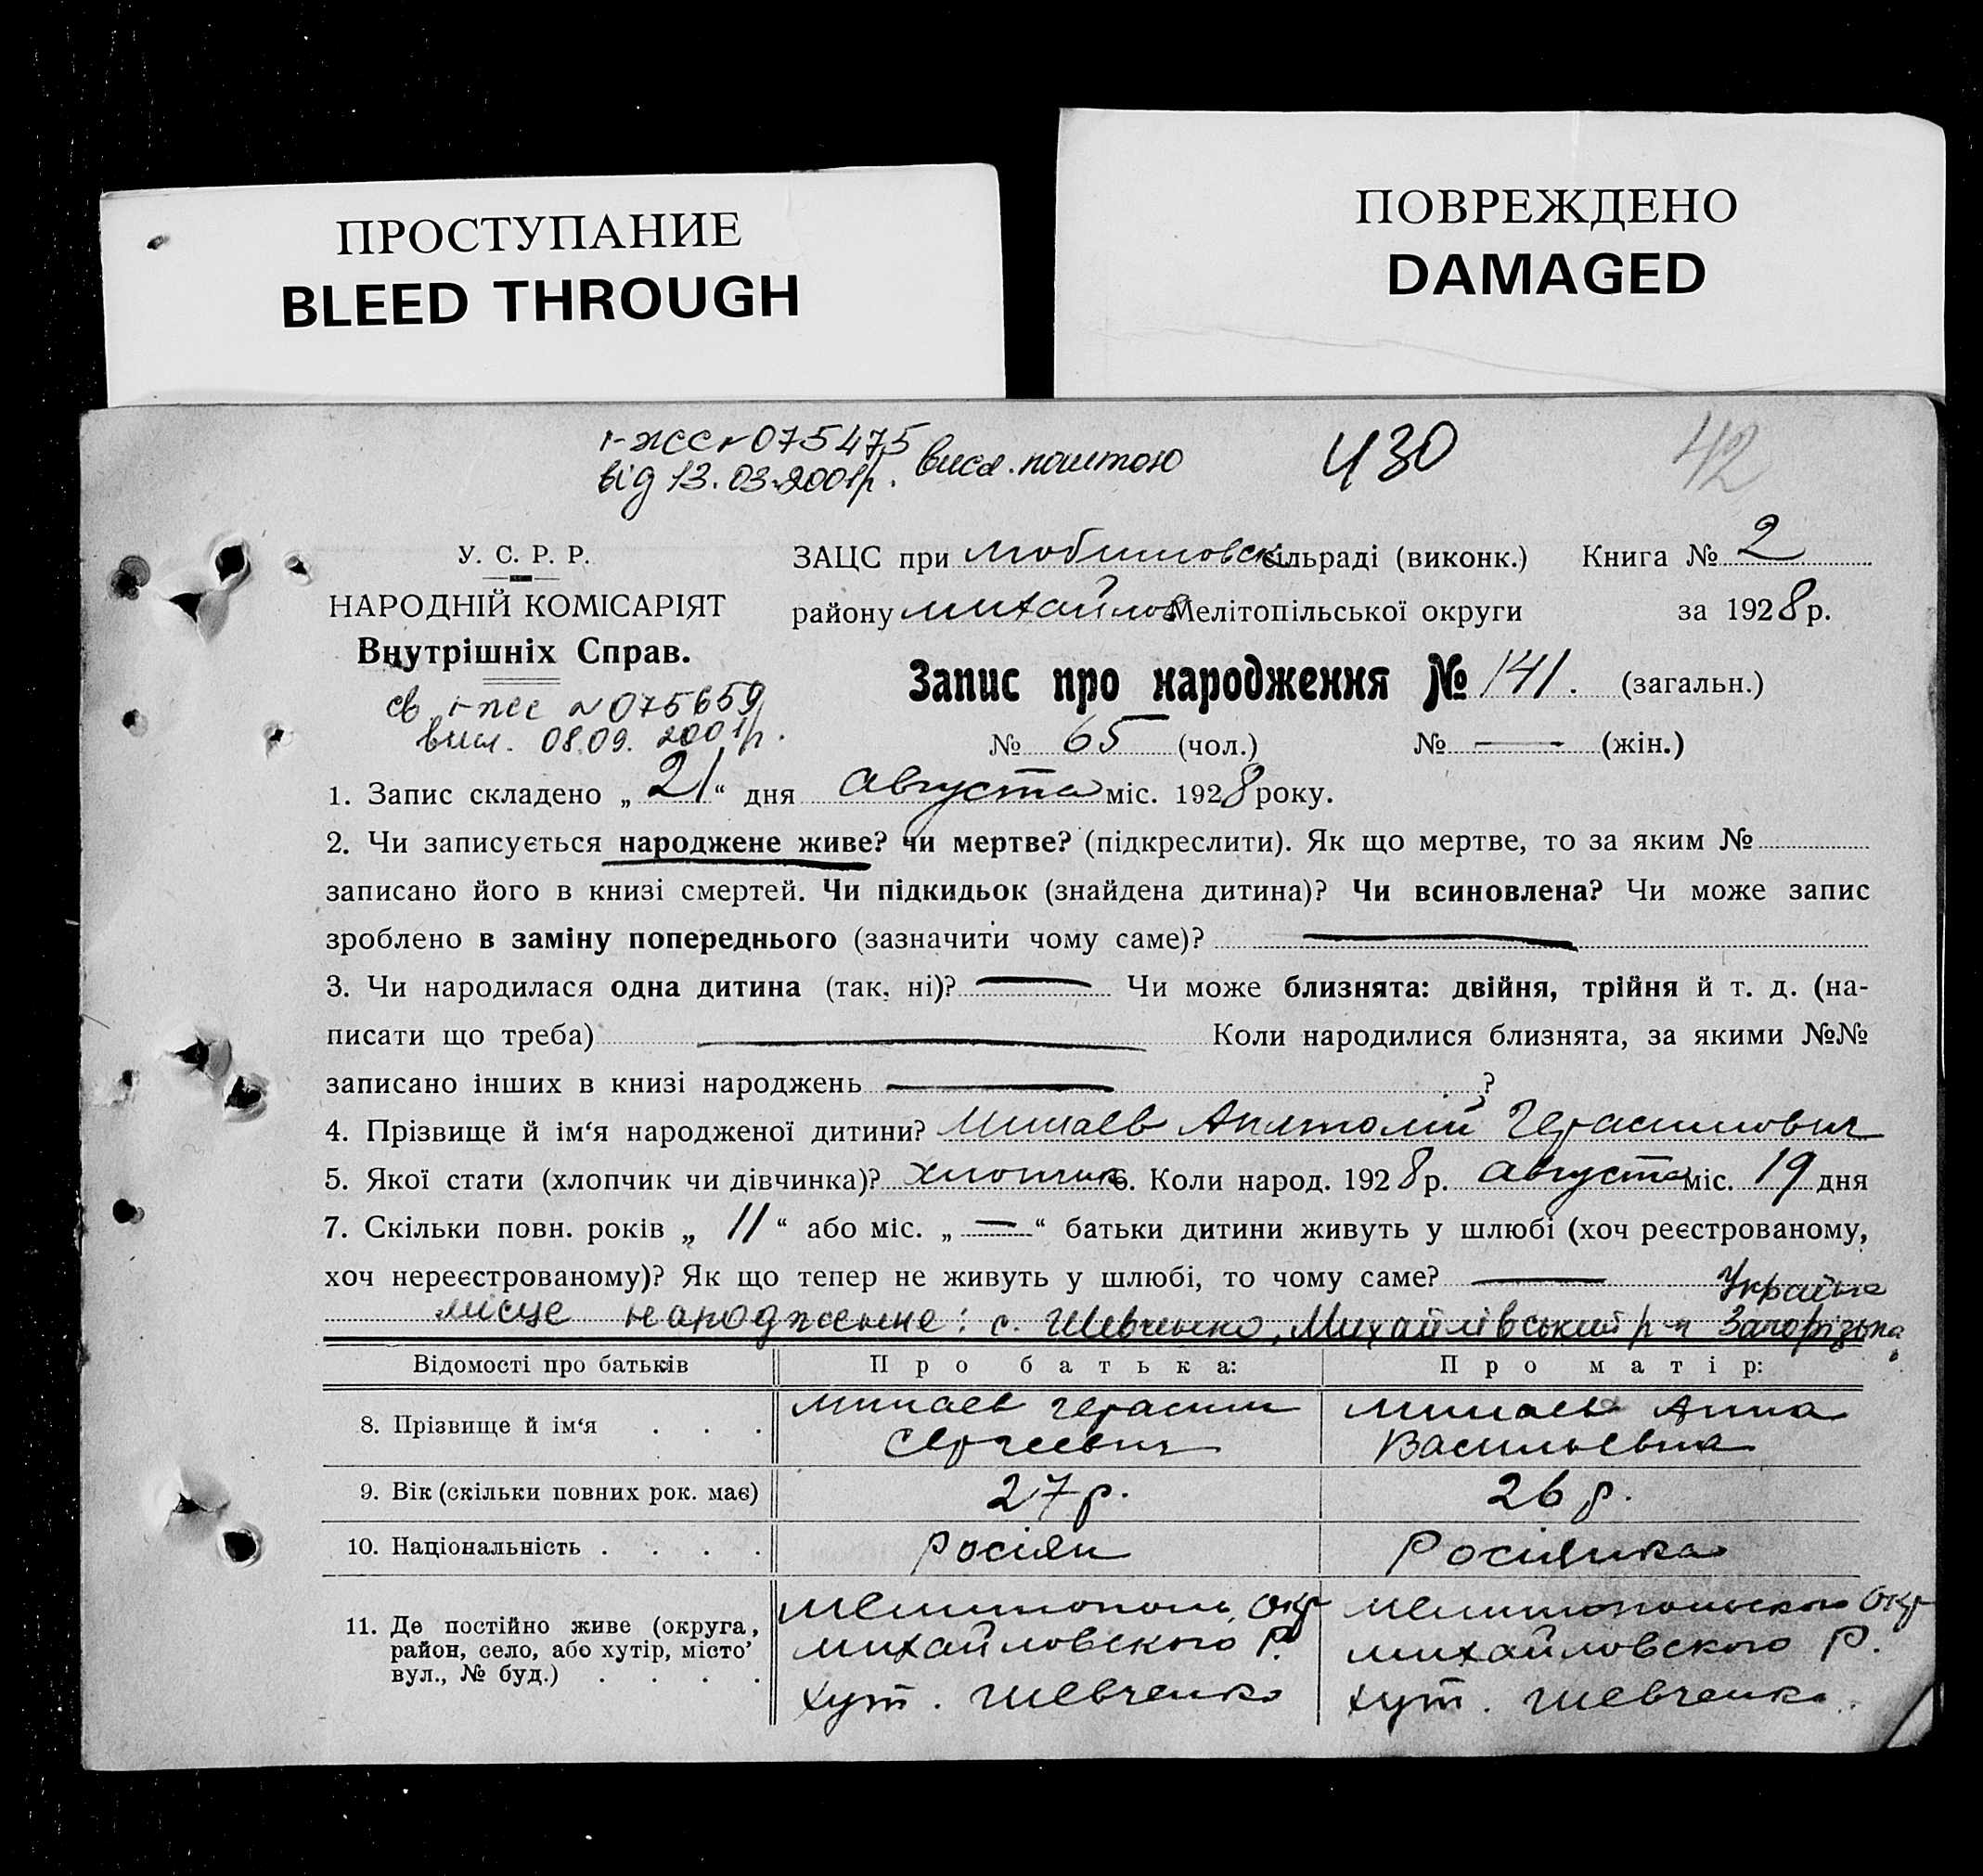 ПРОСТУПАНИЕ
BLEED THROUGH
ПОВРЕЖДЕНО
DAMAGED
І-ЖС № 075475
від 13.03.2001р. висл. поштою
430
42
У. С. Р. Р.
НАРОДНІЙ КОМІСАРІЯТ
Внутрішніх Справ.
св. І-ЖС № 075659
висл. 08.09. 2001р.
ЗАЦС при сільраді (виконк.) Книга № 2
району Михайлов Мелітопільської округи за 1928 р.
Запис про народження № 141. (загальн.)
№ 65 (чол.) № — (жін.)
1. Запис складено „ 21 “ дня Августа міс. 1928 року.
2. Чи записується народжене живе? чи мертве? (підкреслити). Як що мертве, то за яким №
записано його в книзі смертей. Чи підкидьок (знайдена дитина)? Чи всиновлена? Чи може запис
зроблено в заміну попереднього (зазначити чому саме)? —
3. Чи народилася одна дитина (так, ні)? — Чи може близнята: двійня, трійня й т. д. (на-
писати що треба) — Коли народилися близнята, за якими №№
записано інших в книзі народжень — ?
4. Прізвище й ім‘я народженої дитини? Минаев Анатолій Герасимович
5. Якої стати (хлопчик чи дівчинка)? хлопчик 6. Коли народ. 1928 р. Августа міс. 19 дня
7. Скільки повн. років „ 11 “ або міс. „ — “ батьки дитини живуть у шлюбі (хоч реєстрованому,
хоч нереєстрованому)? Як що тепер не живуть у шлюбі, то чому саме? — Україна
місце народження: с. Шевченко, Михайлівський р-н Запорізька
Відомості про батьків Про батька: Про матір:
8. Прізвище й ім‘я . . . Минаев Герасим Минаев Анна
Сергеевич Васильевна
9. Вік (скільки повних рок. має) 27 р. 26 р.
10. Національність . . . . росіян Росіянка
11. Де постійно живе (округа, район, село, або хутір, місто’ вул., № буд.) . . . .
Мелитополь. Окр Мелитопольского Окр
Михайловского Р. Михайловского Р.
хут. Шевченко хут. Шевченко